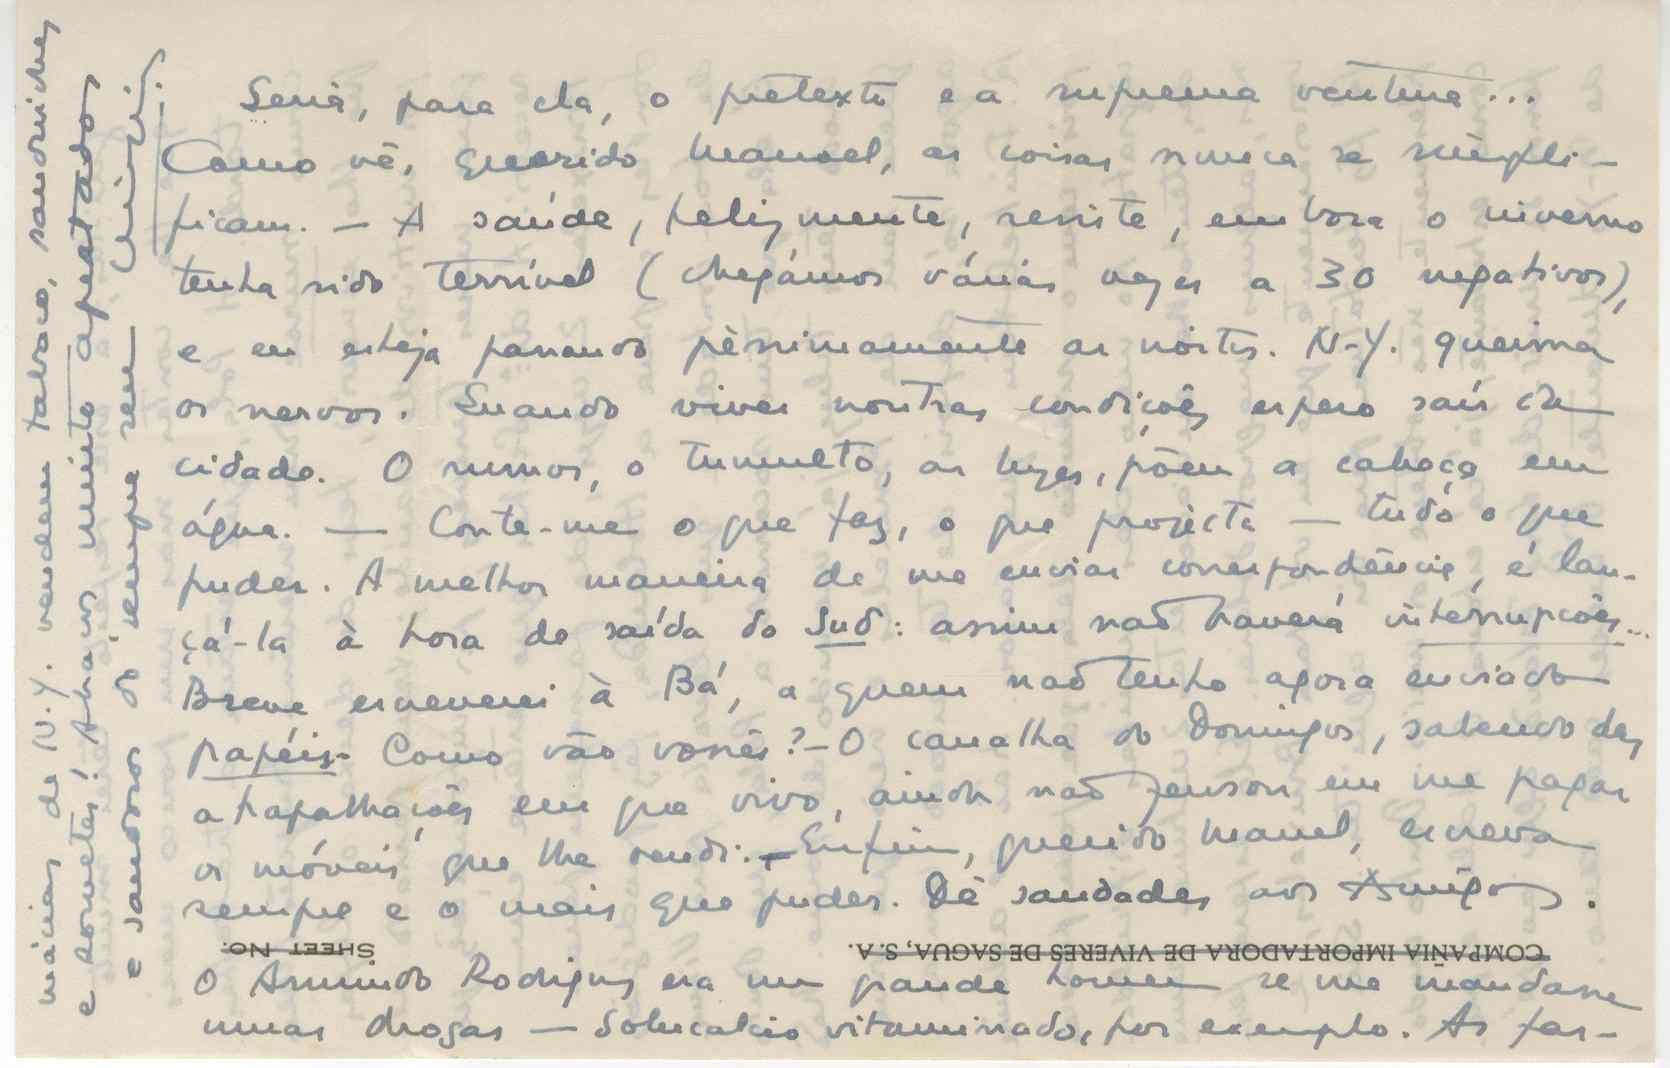 Seria, para ela, o pretexto e a suprema ventura...
Como vê, querido Manoel, as coisas nunca se simpli-
ficam. — A saúde, felizmente, resiste, embora o inverno
tenha sido terrível (chegámos várias vezes a 30 negativos),
e eu esteja passando pèssimamente as noites. N-Y. queima
os nervos. Quando viver noutras condições espero sair da
cidade. O rumor, o tumulto, as luzes, põem a cabeça em
água. — Conte-me o que faz, o que projecta — tudo o que
puder. A melhor maneira de me enviar correspondência, é lan-
çá-la à hora de saída do Sud: assim não haverá interrupções...
Breve escreverei à Bá, a quem não tenho agora enviado
papéis. Como vão vossês? — O canalha do Domingos, sabendo das
atrapalhações em que vivo, ainda não pensou em me pagar
os móveis que lhe vendi. — Enfim, querido Manuel, escreva
sempre e o mais que puder. Dê saudades aos Amigos.
COMPAÑIA IMPORTADORA DE VIVERES DE SAGUA, S. A.
SHEET NO.
O Armindo Rodrigues era um grande homem se me mandasse
umas drogas — Solucalcio vitaminado, por exemplo. As far-
mácias de N.Y. vendem tabaco, sandwiches
e sorvetes! Abraços muito apertados
e saudosos do sempre seu